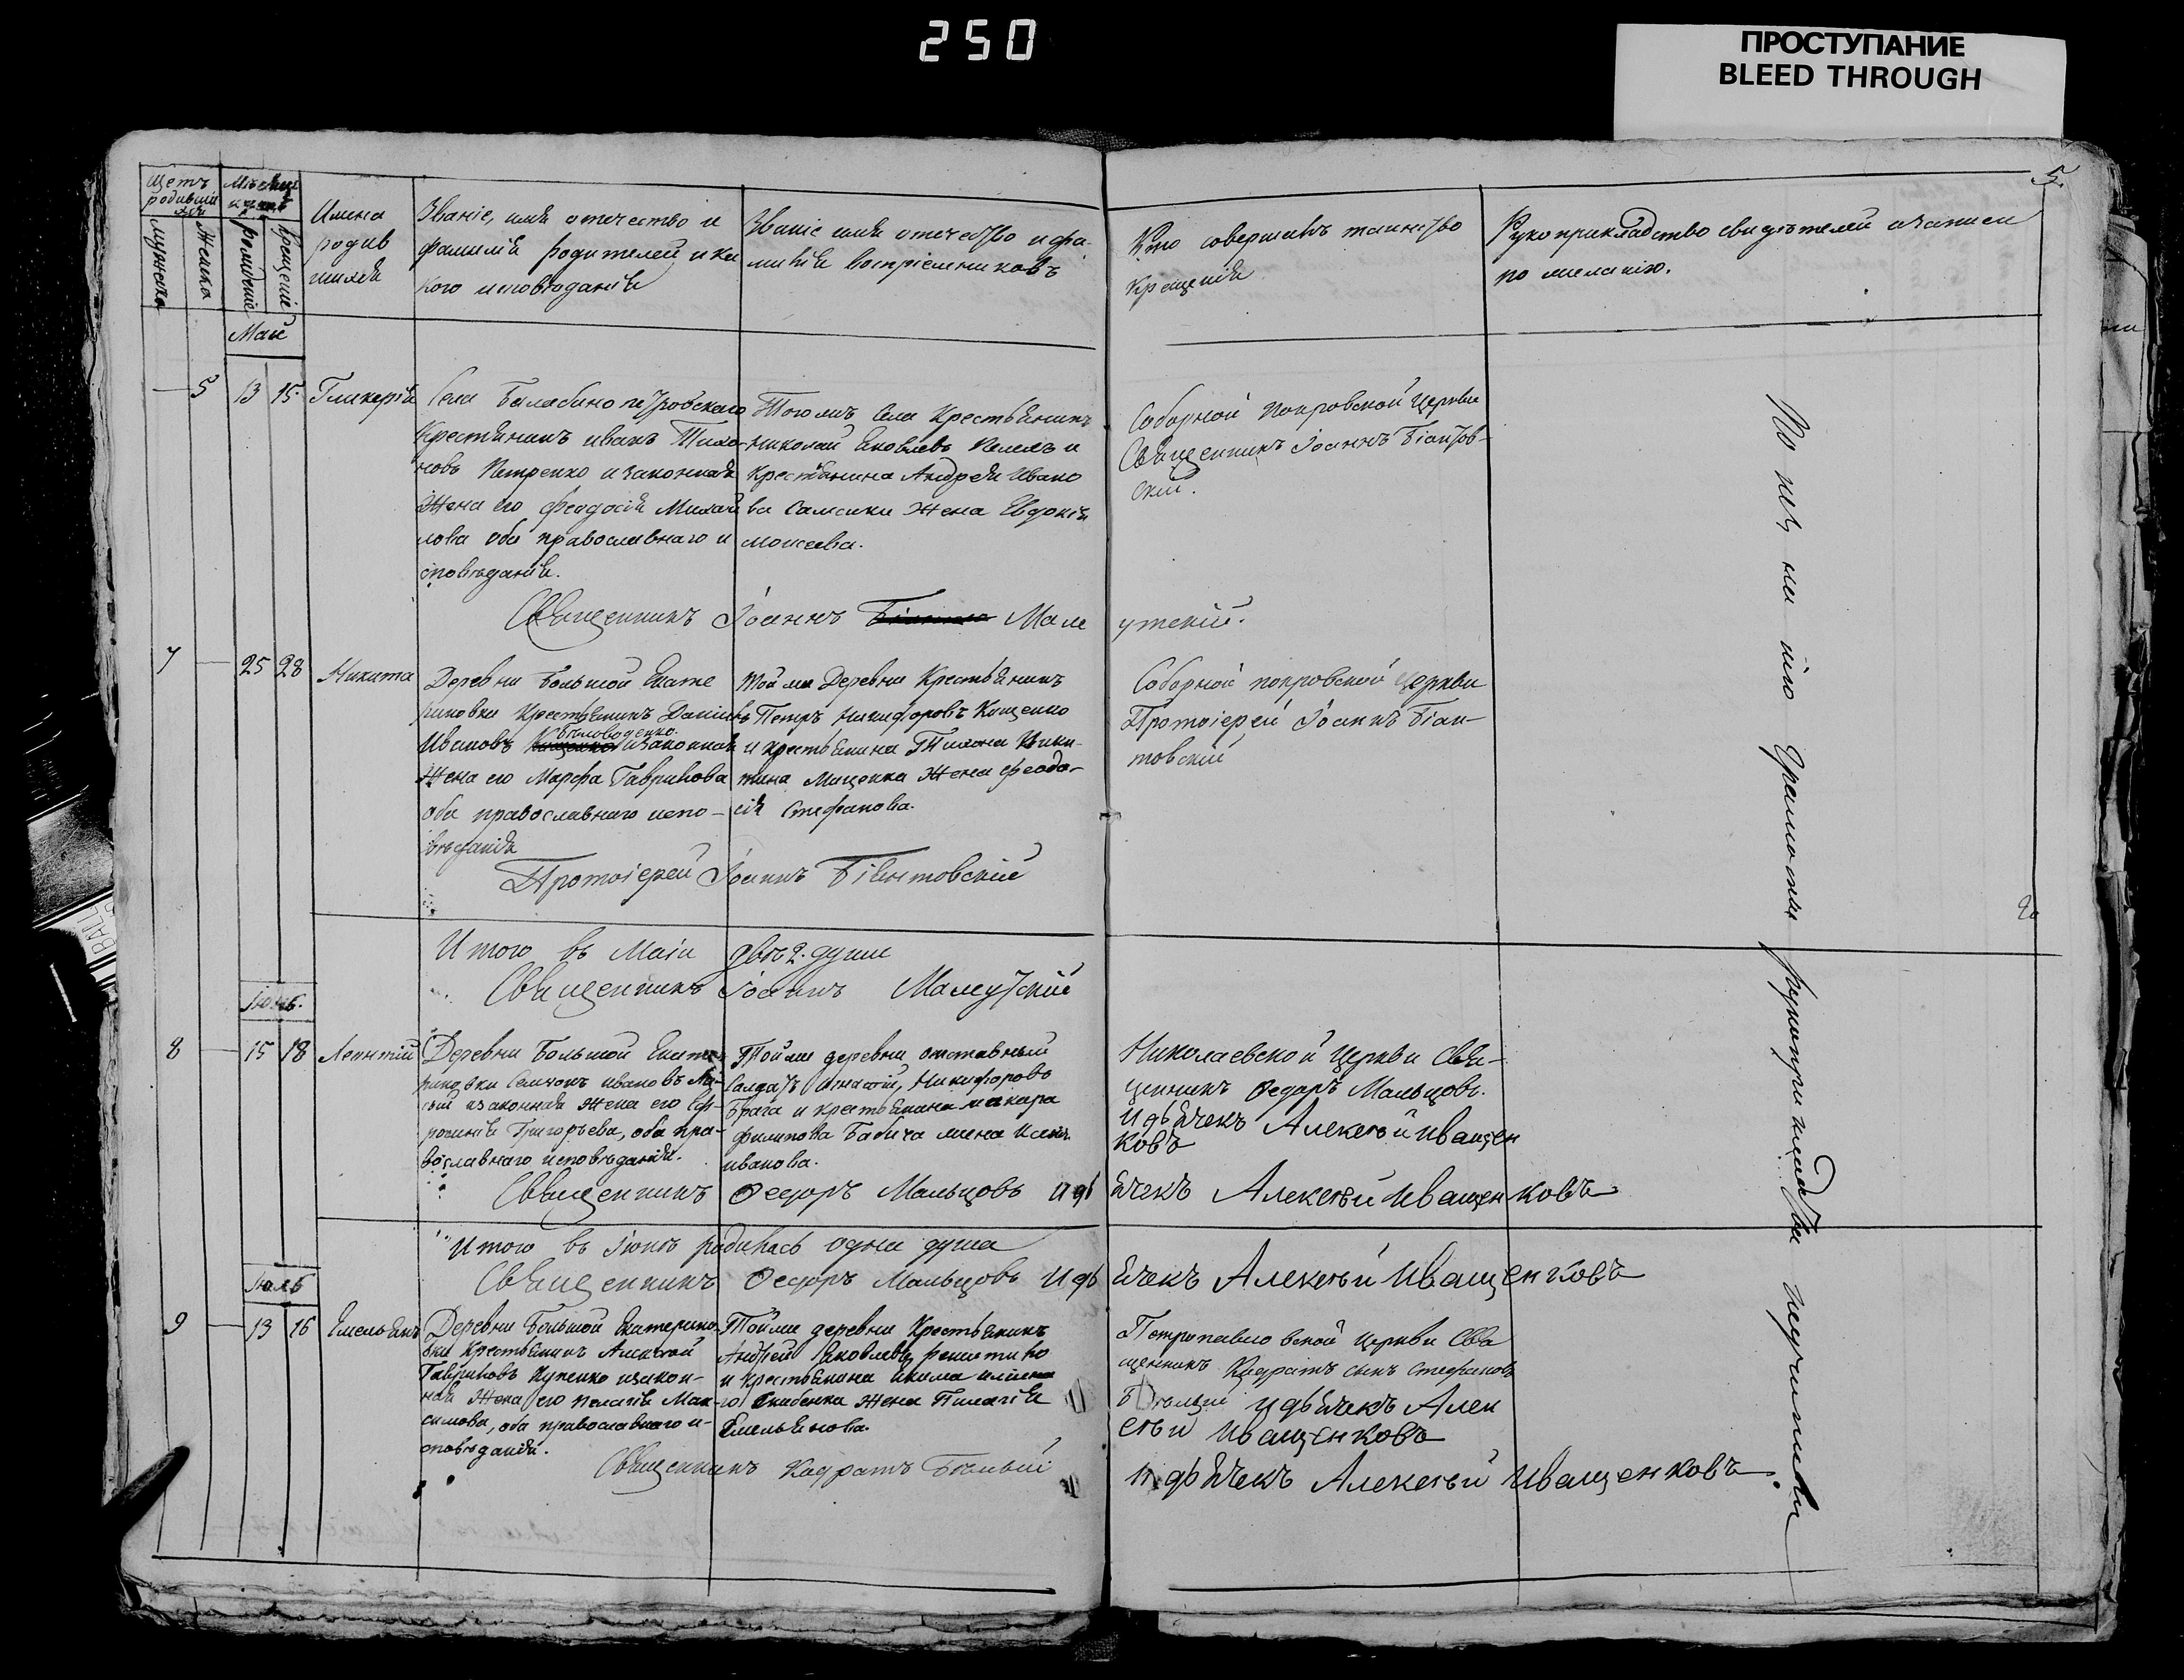 250
ПРОСТУПАНИЕ
BLEED THROUGH
5.
Щетъ родивши
Мужеска
Женска
рожденіе
крещеніе
Имена
родив
шихся
Званіе, имя отечество и
фамилія родителей, и ка
кого исповѣданія
Званіе имя отечество и фа-
милія воспріемниковъ
Кто совершалъ таинство
крещенія
Рукоприкладство свидѣтелей о записи
по желанію.
Маій
5 13 15 Гликерія
Села Балабино петровскаго
Крестьянинъ иванъ Тихо-
новъ Петренко и законная
Жена его феодосія Михай
лова оба православнаго и
сповѣданія.
Того жъ Села Крестьянинъ
Николай Яковлевъ и
Крестьянина Андрея Ивано
ва Самсики Жена Евдокія
моисеева.
Соборной покровской Церкви
Священникъ Іоаннъ Біантов-
скій.
Священникъ Іоаннъ Мале
утскій.
7 25 28 Никита
Деревни Большой Екате
риновки Крестьянинъ Даніилъ
Ивановъ Виловоденко и законная
Жена его Марфа Гаврилова
оба православнаго испо-
вѣданія
Той же Деревни Крестьянинъ
Петръ Никифоровъ Кощенко
и крестьянина Тихона Ники-
тина Жена феодо-
сія Стефанова.
Соборной покровской церкви
Протоіерей Іоаннъ Біан-
товскій
Протоіерей Іоаннъ Біантовскій
Итого въ Маіи двѣ 2. души
Священникъ Іоаннъ Малеутскій
Іюнь.
8 15 18 Леонтій
Деревни Большой Екате-
риновки Семионъ ивановъ
и законная Жена его Еф-
росинія Григорьева, оба пра-
вославнаго исповѣданія.
Той же деревни отставный
Салдатъ Игнатій Никифоровъ
Брага и крестьянина макара
филипова Бабича жена
иванова.
Николаевской Церкви Свя-
щенникъ Ѳедоръ Мальцовъ.
и дьячекъ Алексѣй иващен
ковъ
Священникъ Ѳедоръ Мальцовъ и дьячекъ Алексѣй иващенковъ
Итого въ Іюнѣ родилась одна душа
Священникъ Ѳедоръ Мальцовъ и дьячекъ Алексѣй иващенковъ
Іюль
9 13 16 Емельянъ
Деревни Большой Екатерино-
вки Крестьянинъ Алексѣй
Гавриловъ Куценко и закон-
ная Жена его пелагія Мак-
симова, оба православнаго и-
сповѣданія.
Той же деревни Крестьянинъ
Андрей Яковлевъ решетило
и крестьянина
Скибенка Жена Пилагія
Емельянова.
Петропавловской церкви Свя
щенникъ Кадратъ сынъ Стефановъ
Бѣлый и дьячекъ Алек
сѣй иващенковъ
Священникъ Кадратъ Бѣлый
и дьячекъ Алексѣй иващенковъ.
По не на нію Грамоты рукоприкладства неучинили